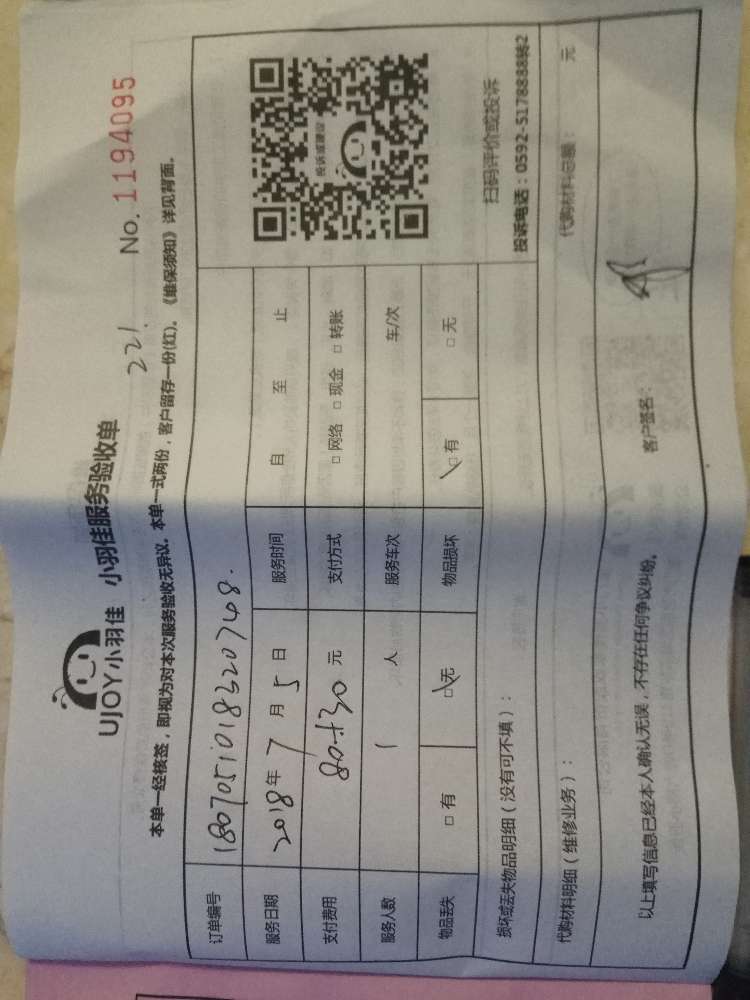 UJOY小羽佳 小羽佳服务验收单
221. No. 1194095
本单一经核签，即视为对本次服务验收无异议。本单一式两份，客户留存一份(红)。《维保须知》详见背面。
订单编号 1807051018320748.
服务日期 2018年7月5日 服务时间 自 至 止
支付费用 80+30元 支付方式 □网络 □现金 □转账
服务人数 1 人 服务车次 车/次
物品丢失 □有 □无 物品损坏 □有 □无
投诉或建议
扫码评价或投诉
投诉电话：0592-5178888转2
损坏或丢失物品明细（没有可不填）：
代购材料明细（维修业务）： 代购材料总额： 元
以上填写信息已经本人确认无误，不存在任何争议纠纷。 客户签名：